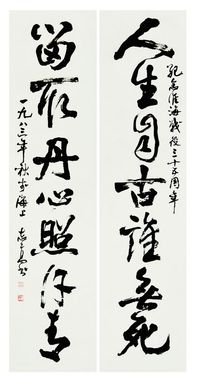 人生自古誰無死
紀念淮海戰役三十五周年
留取丹心照汗青
一九八三年秋於海上